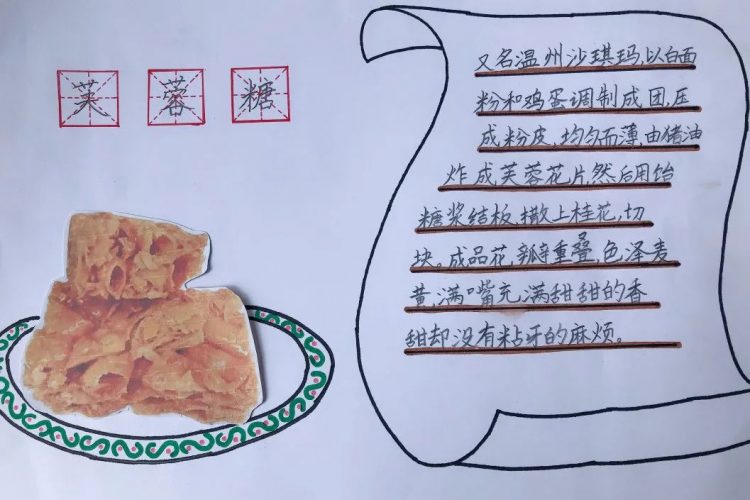 芙蓉糖
又名温州沙琪玛,以白面
粉和鸡蛋调制成团,压
成粉皮,均匀而薄,由猪油
炸成芙蓉花片,然后用饴
糖浆结板,撒上桂花,切
块。成品花,瓣重叠,色泽麦
黄,满嘴充满甜甜的香
甜却没有粘牙的麻烦。